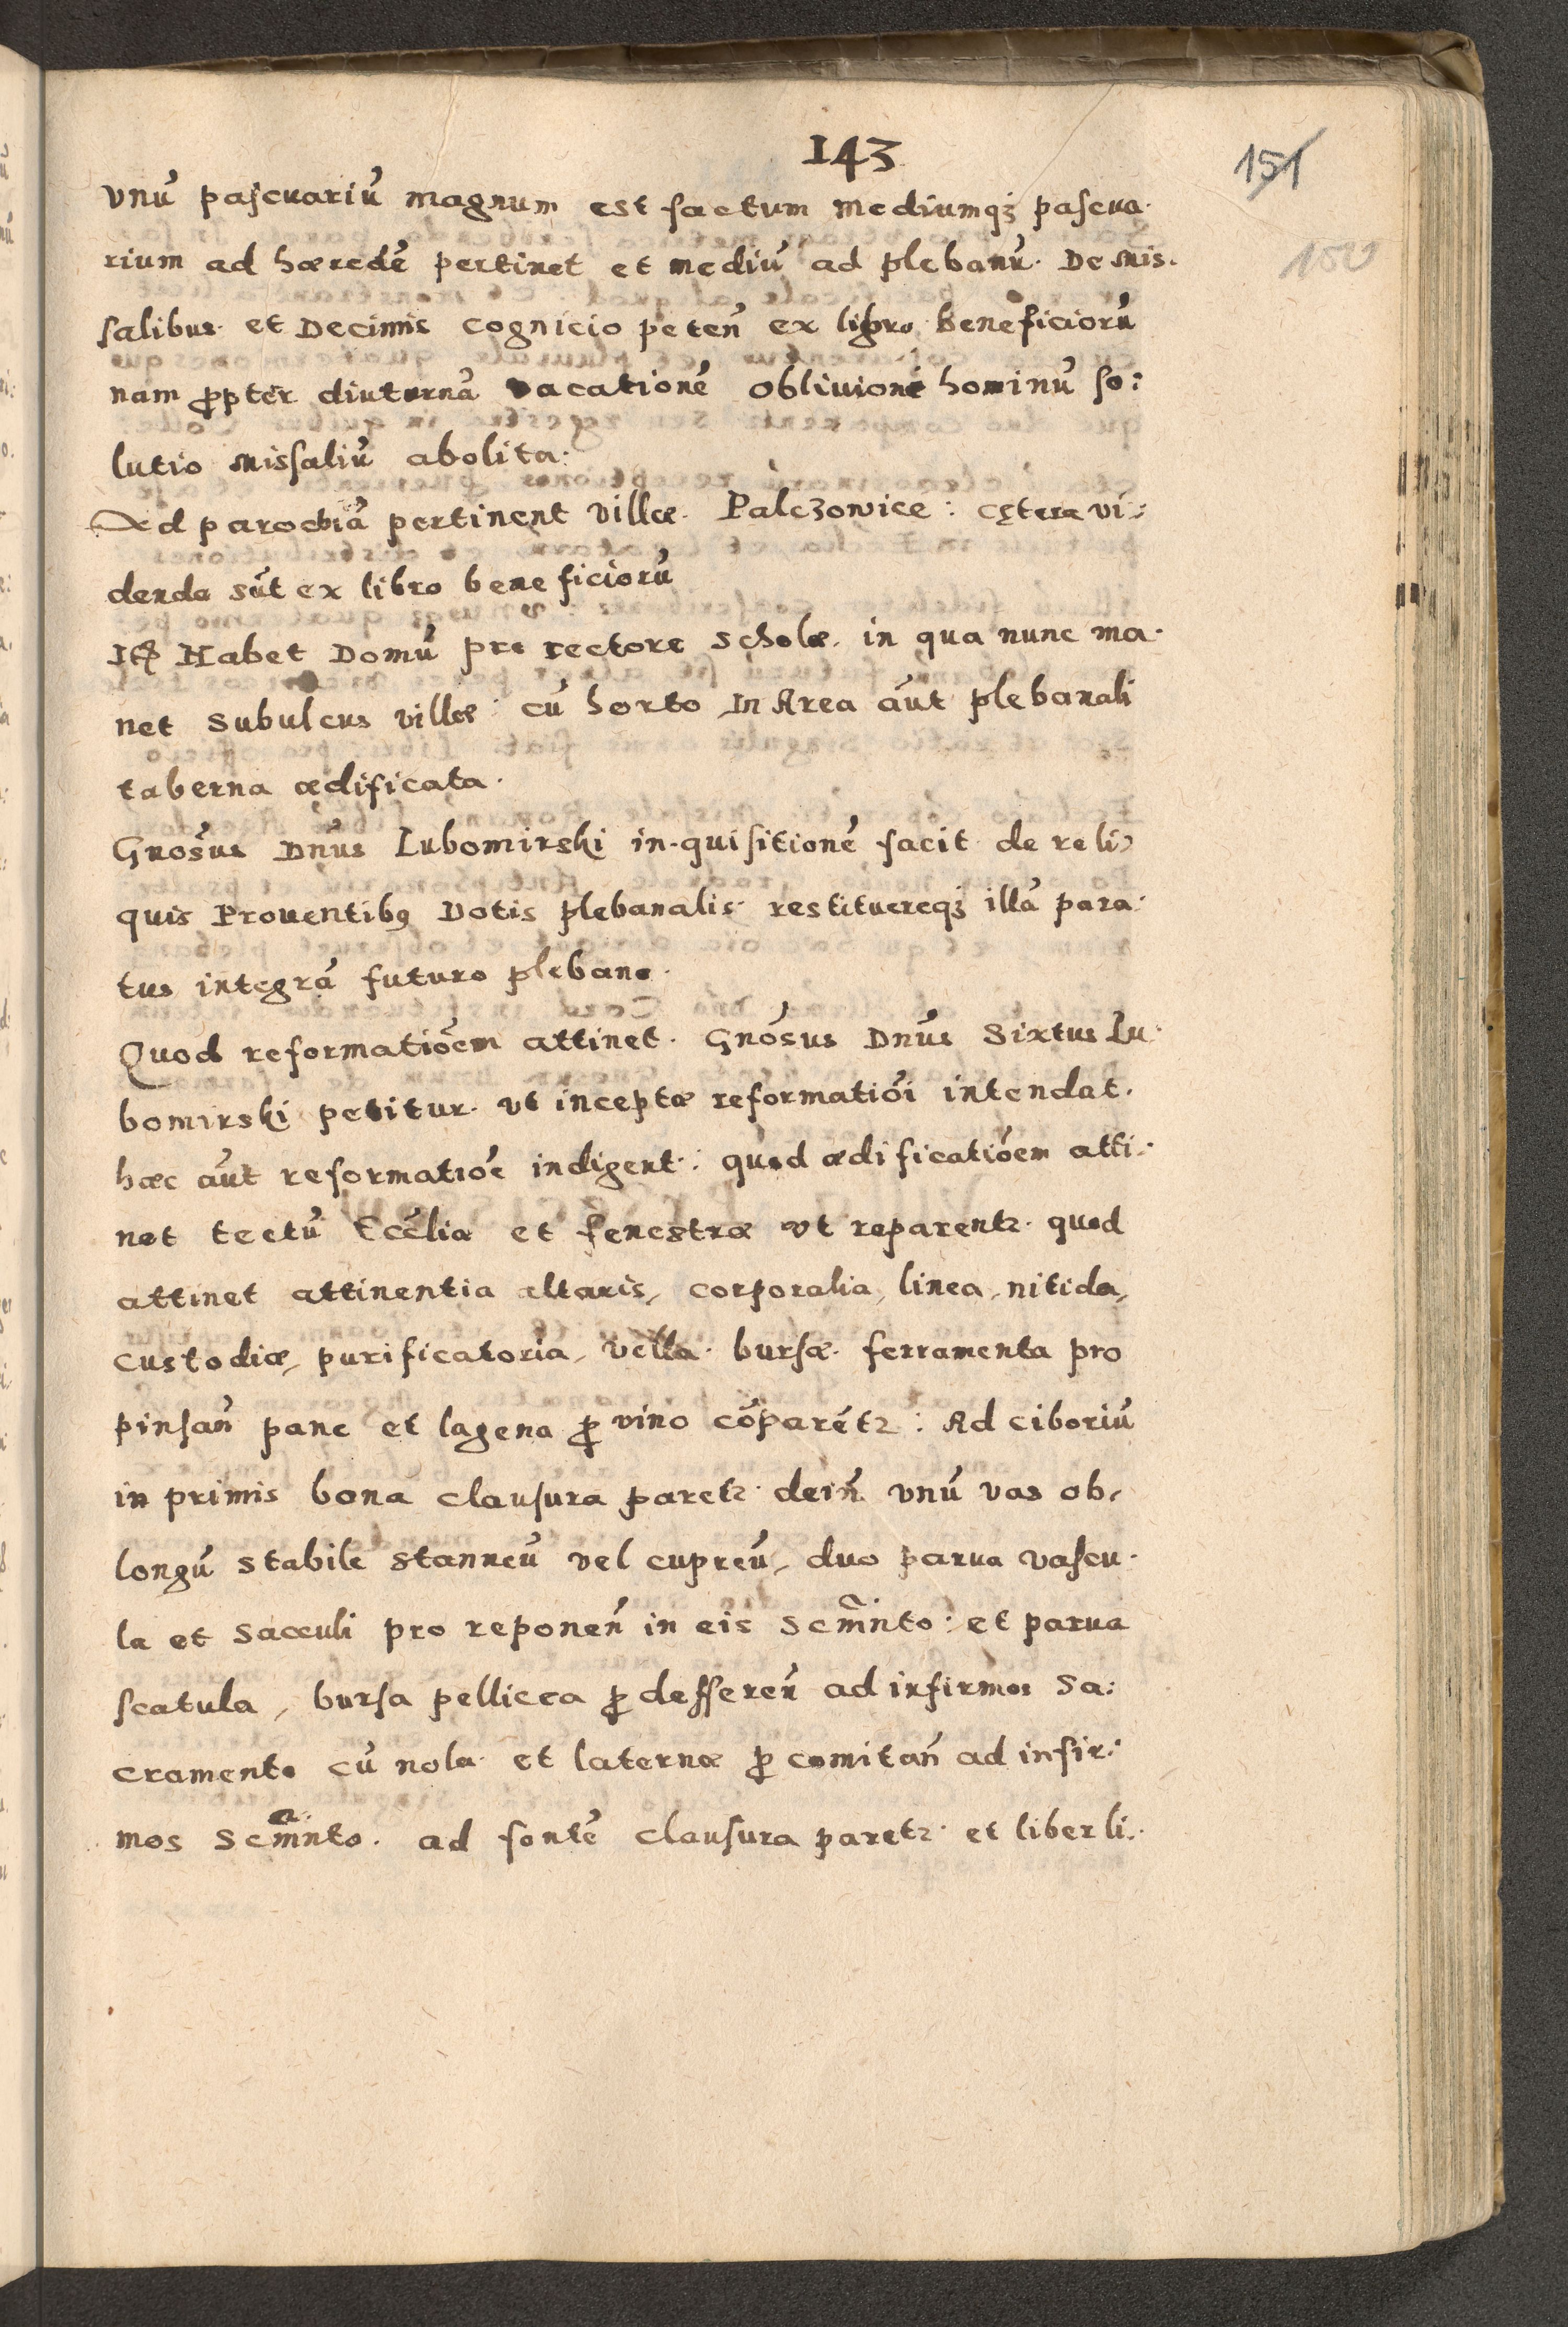 143
151
150
vnū pascuariū magnum est factum mediumqꝫ pascua·
rium ad hæredē pertinet et mediū ad plebanū. De mis·
salibus et Decimis cognicio peteñ ex libro Beneficiorū
nam ꝓpter diuturnā vacationē obliuione hominū so:
lutio missaliū abolita:
Ad parochiā pertinent villæ. Palczowice: cętera vi:
denda sūt ex libro beneficiorū
Itꝫ Habet Domū pro rectore scholæ. in qua nunc ma·
net subulcus villæ: cū horto In Area aūt plebanali
taberna ædificata.
Gnōsus Dn̄us Lubomirski in-quisitionē facit de reli-
quis Prouentibꝰ Dotis plebanalis. restituereqꝫ illā para·
tus integrā futuro plebano.
Quod reformatiōem attinet. Gnōsus Dn̄us Sixtus Lu·
bomirski petitur. vt inceptæ reformatiōi intendat.
hæc aūt reformatiōe indigent: quod ædificatiōem atti:
net tectū Eccłiæ et fenestræ vt reparentꝛ. quod
attinet attinentia altaris, corporalia, linea, nitida,
custodiæ, purificatoria, vella. bursæ. ferramenta pro
pinsañ pane et lagena ꝓ vino cōparētꝛ: Ad ciboriū
in primis bona clausura paretꝛ. deiñ vnū vas ob,
longū stabile stanneū vel cupreū, duo parua vascu·
la et sacculi pro reponeñ in eis Scm̄nto: et parua
scatula, bursa pellicea ꝓ deffereñ ad infirmos Sa:
cramento cū nola. et laternæ ꝓ comitañ ad infir:
mos Scm̄nto. ad fontē clausura paretꝛ. et liber li: